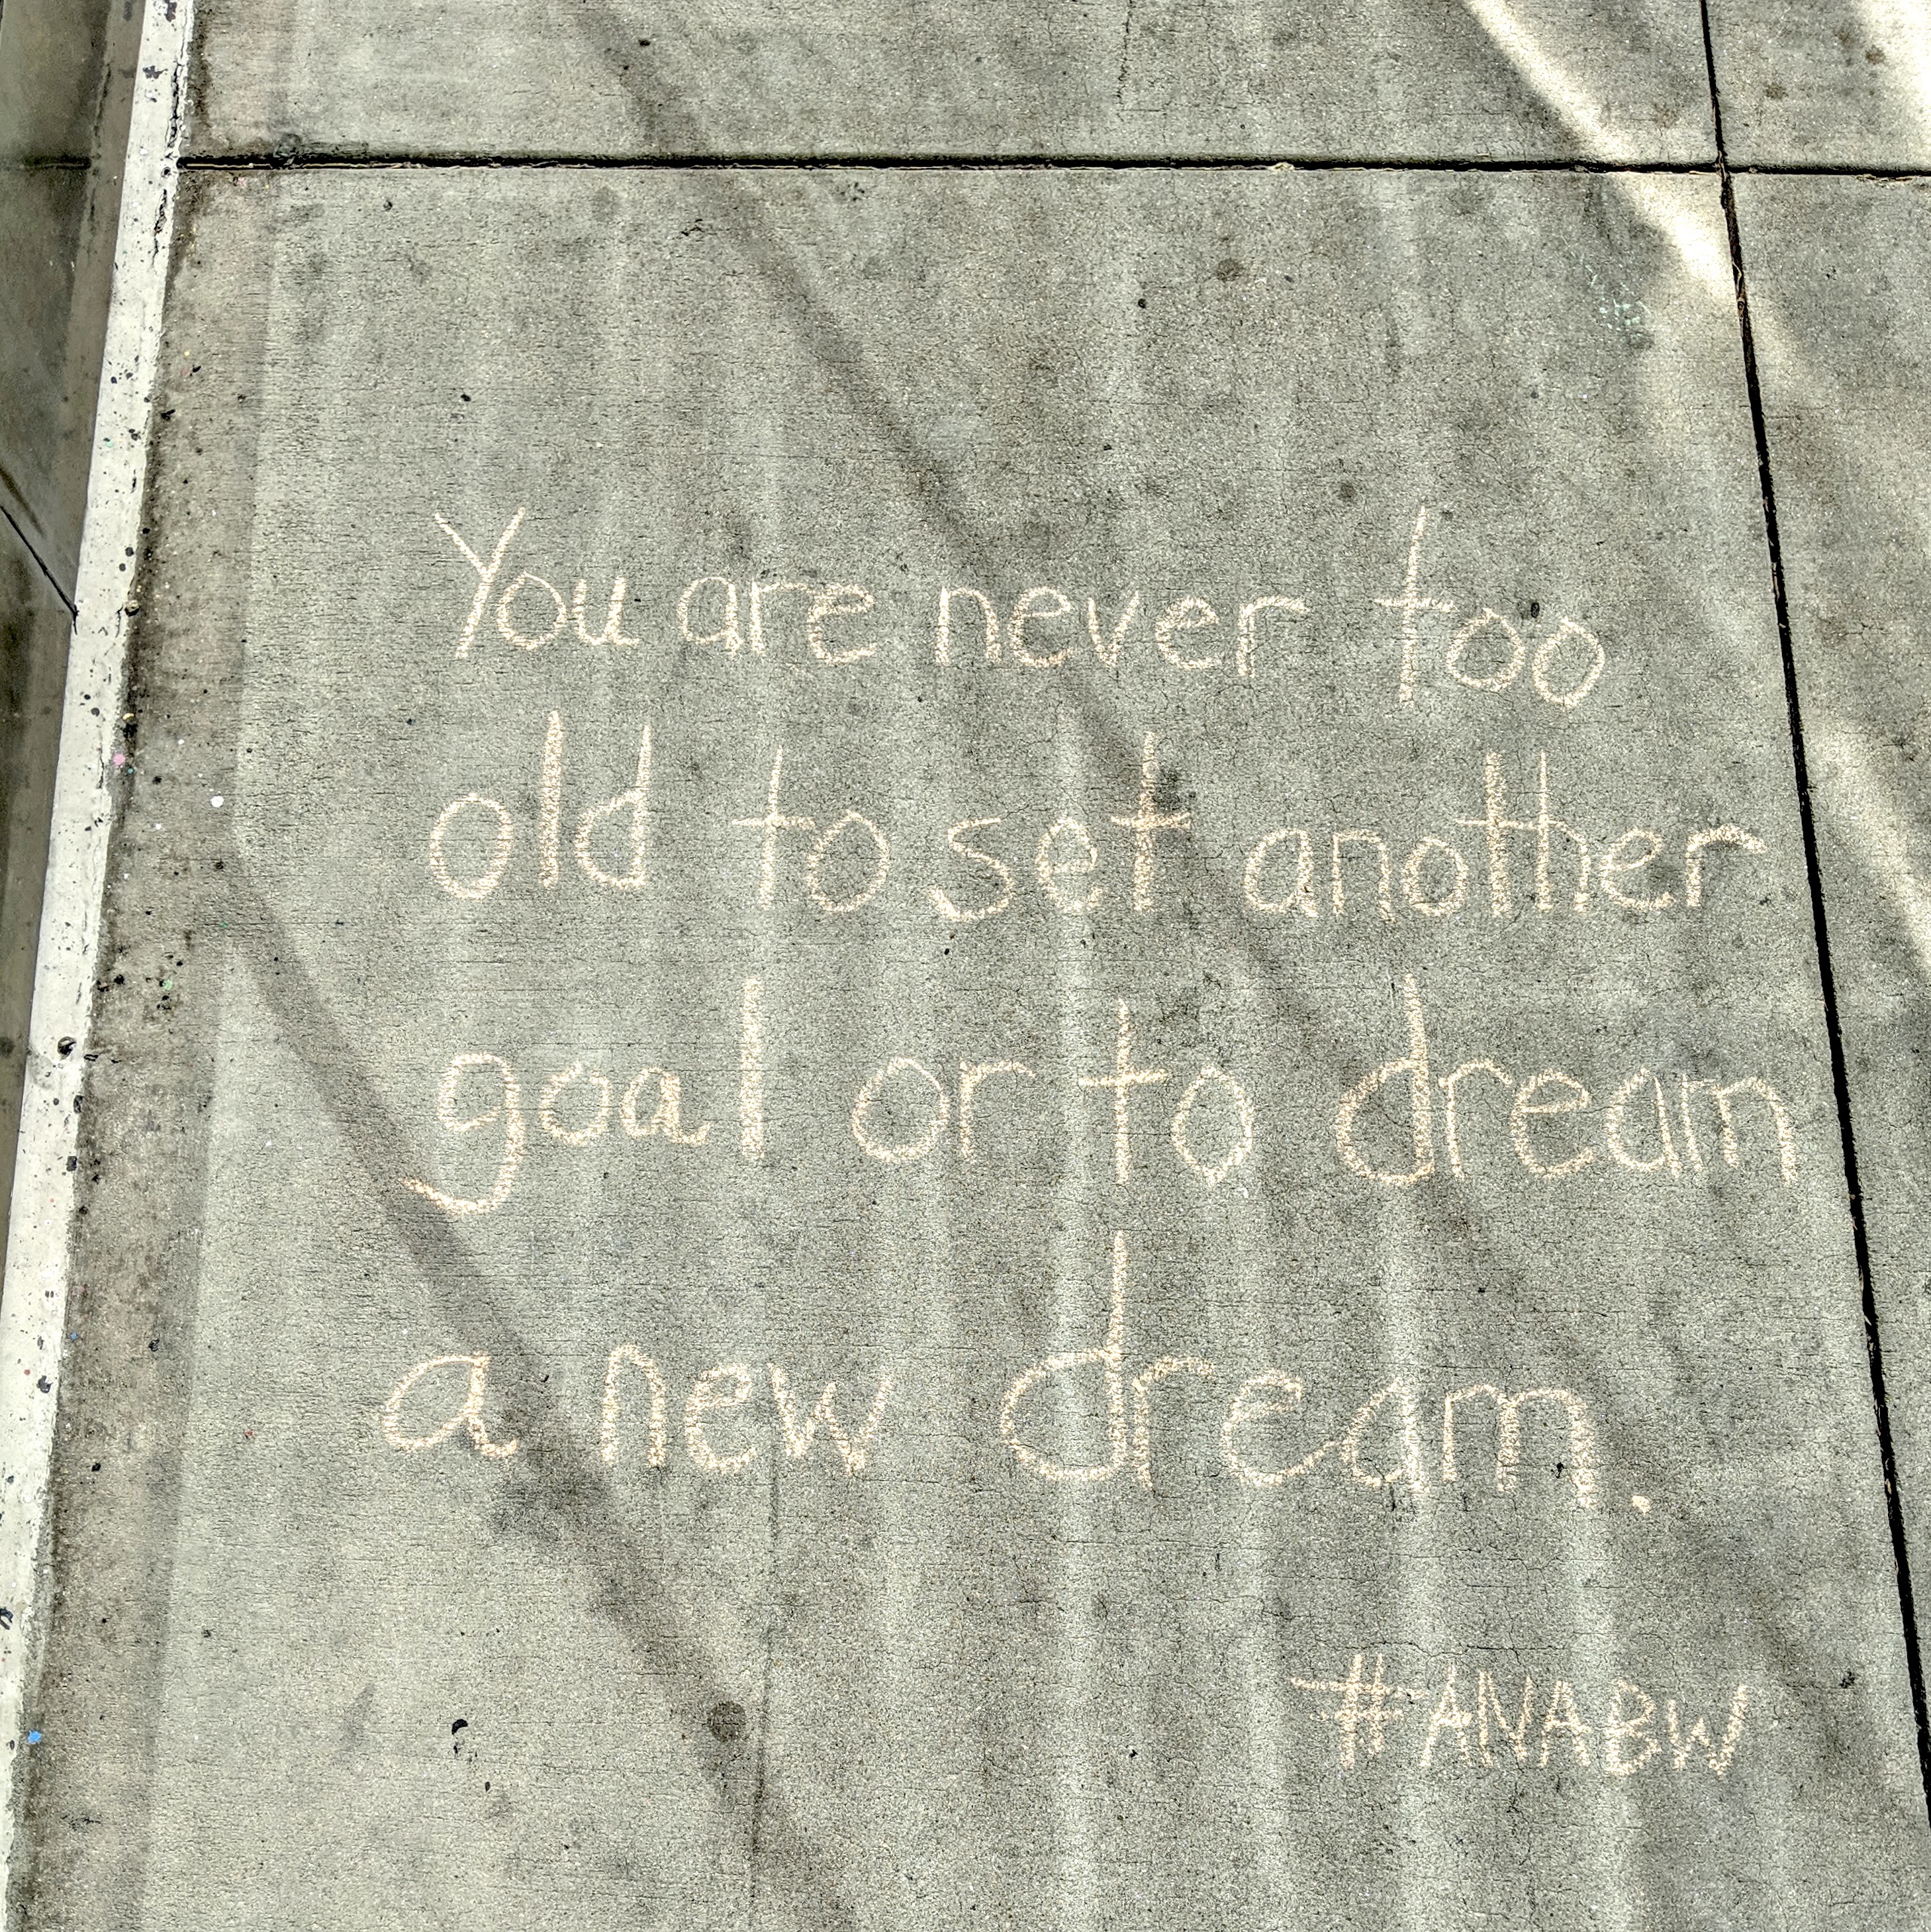 You are never too
old to set another
goal or to dream
a new dream.
#ANABW